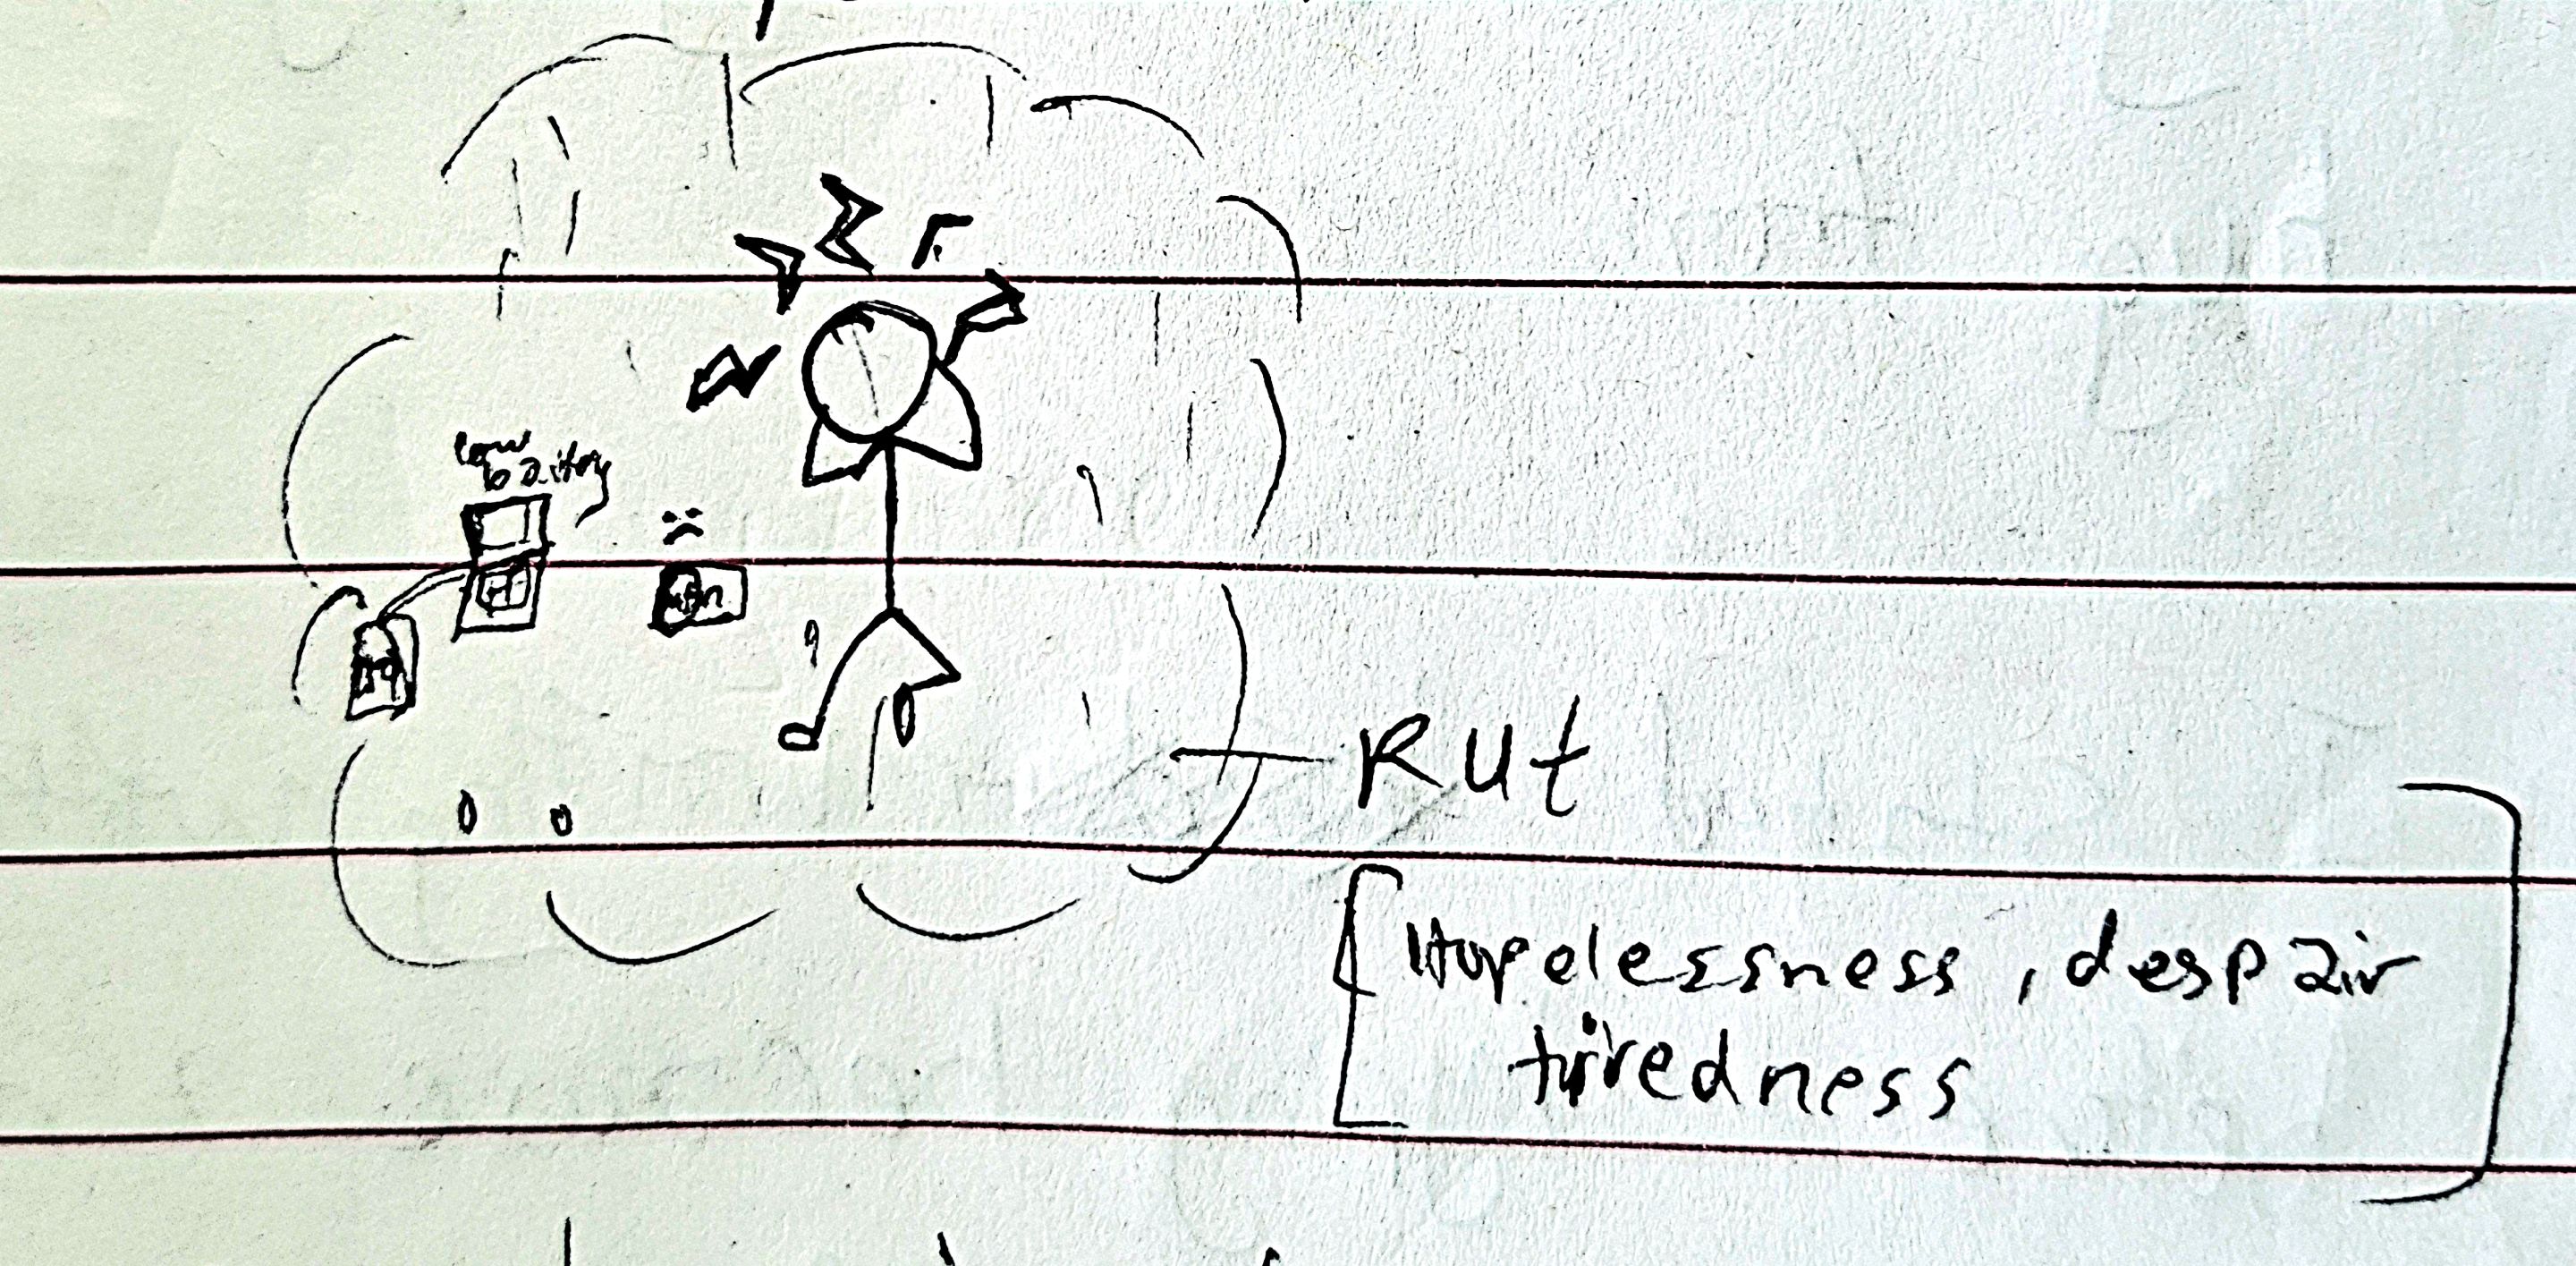 low
battery
Rut
Hopelessness, despair
tiredness